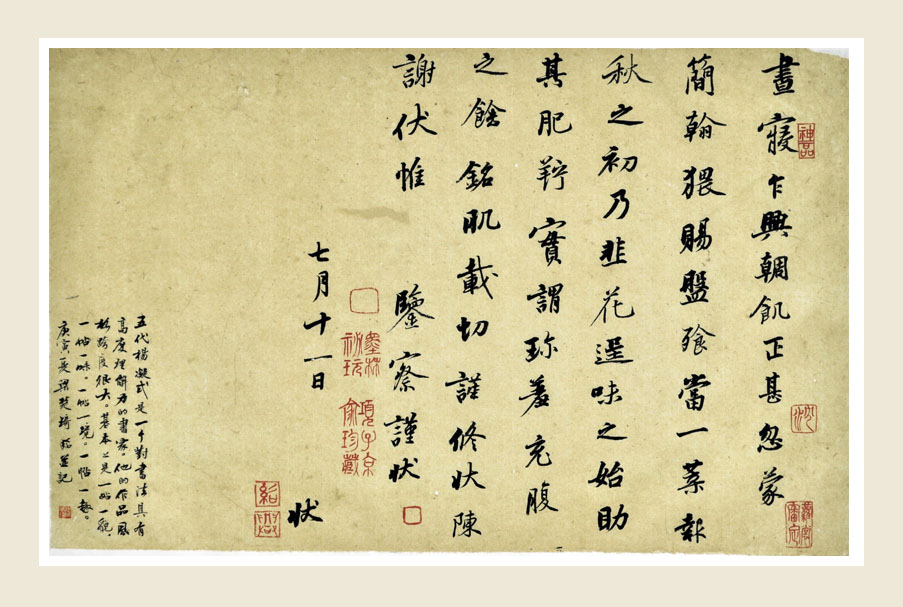 晝寢乍興輖飢正甚忽蒙
簡翰猥賜盤飧當一葉報
秋之初乃韭花逞味之始助
其肥羜實謂珍羞充腹
之餘銘肌載切謹修狀陳
謝伏惟 鑒察謹狀
七月十一日
狀
五代楊凝式是一个對書法具有
高度理解力的書家。他的作品風
格跨度很大。基本上是一帖一貌，
一帖一味，一帖一境。一帖一趣。
庚寅夏 並記
神品
墨林祕玩
項子京家珍藏